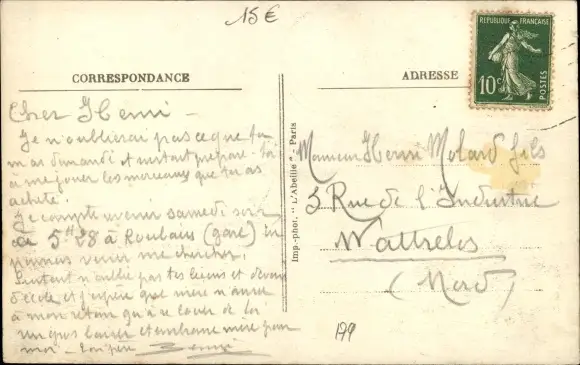 15€
CORRESPONDANCE
ADRESSE
REPUBLIQUE FRANÇAISE
10c
POSTES
Cher Henri -
Je n'oublierai pas ce que tu
m'as demandé et surtout prépare-toi
à me jouer les morceaux que tu as
acheté.
Je compte venir samedi soir
5H28 à Roubaix (gare) tu
pourras venir me chercher.
Surtout n'oublie pas tes leçons et devoirs
d'école et j'espère que mère n'aura
à mon retour qu'à se louer de toi
Un gros baiser et embrasse mère pour
moi - Ton père
Imp.-phot. "L'Abeille" - Paris
Monsieur Henri Molard fils
3 Rue de l'Industrie
Wattrelos
(Nord)
179